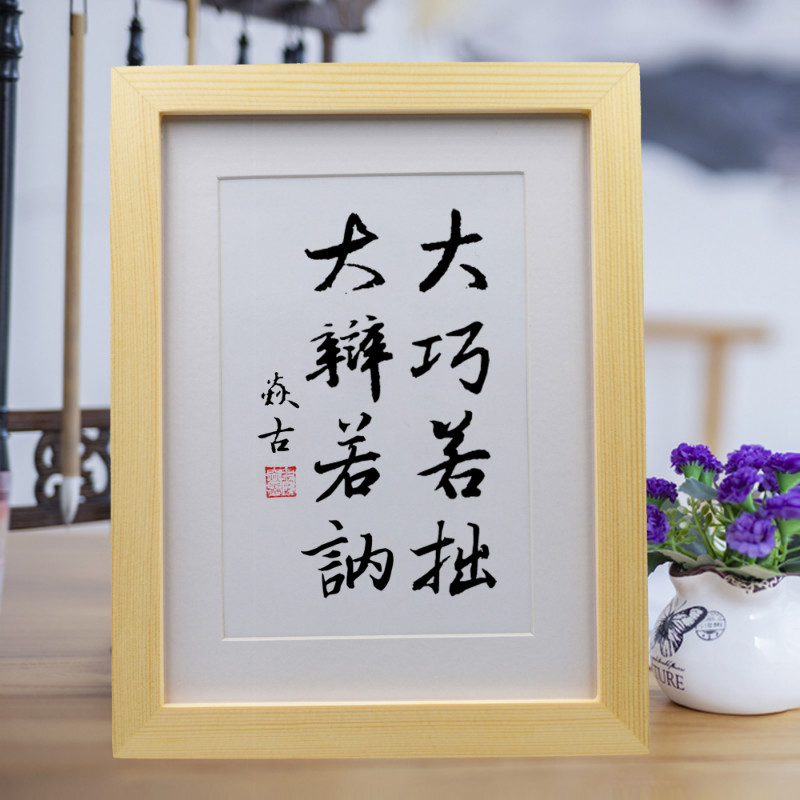 大巧若拙
大辯若訥
焱古
TURE